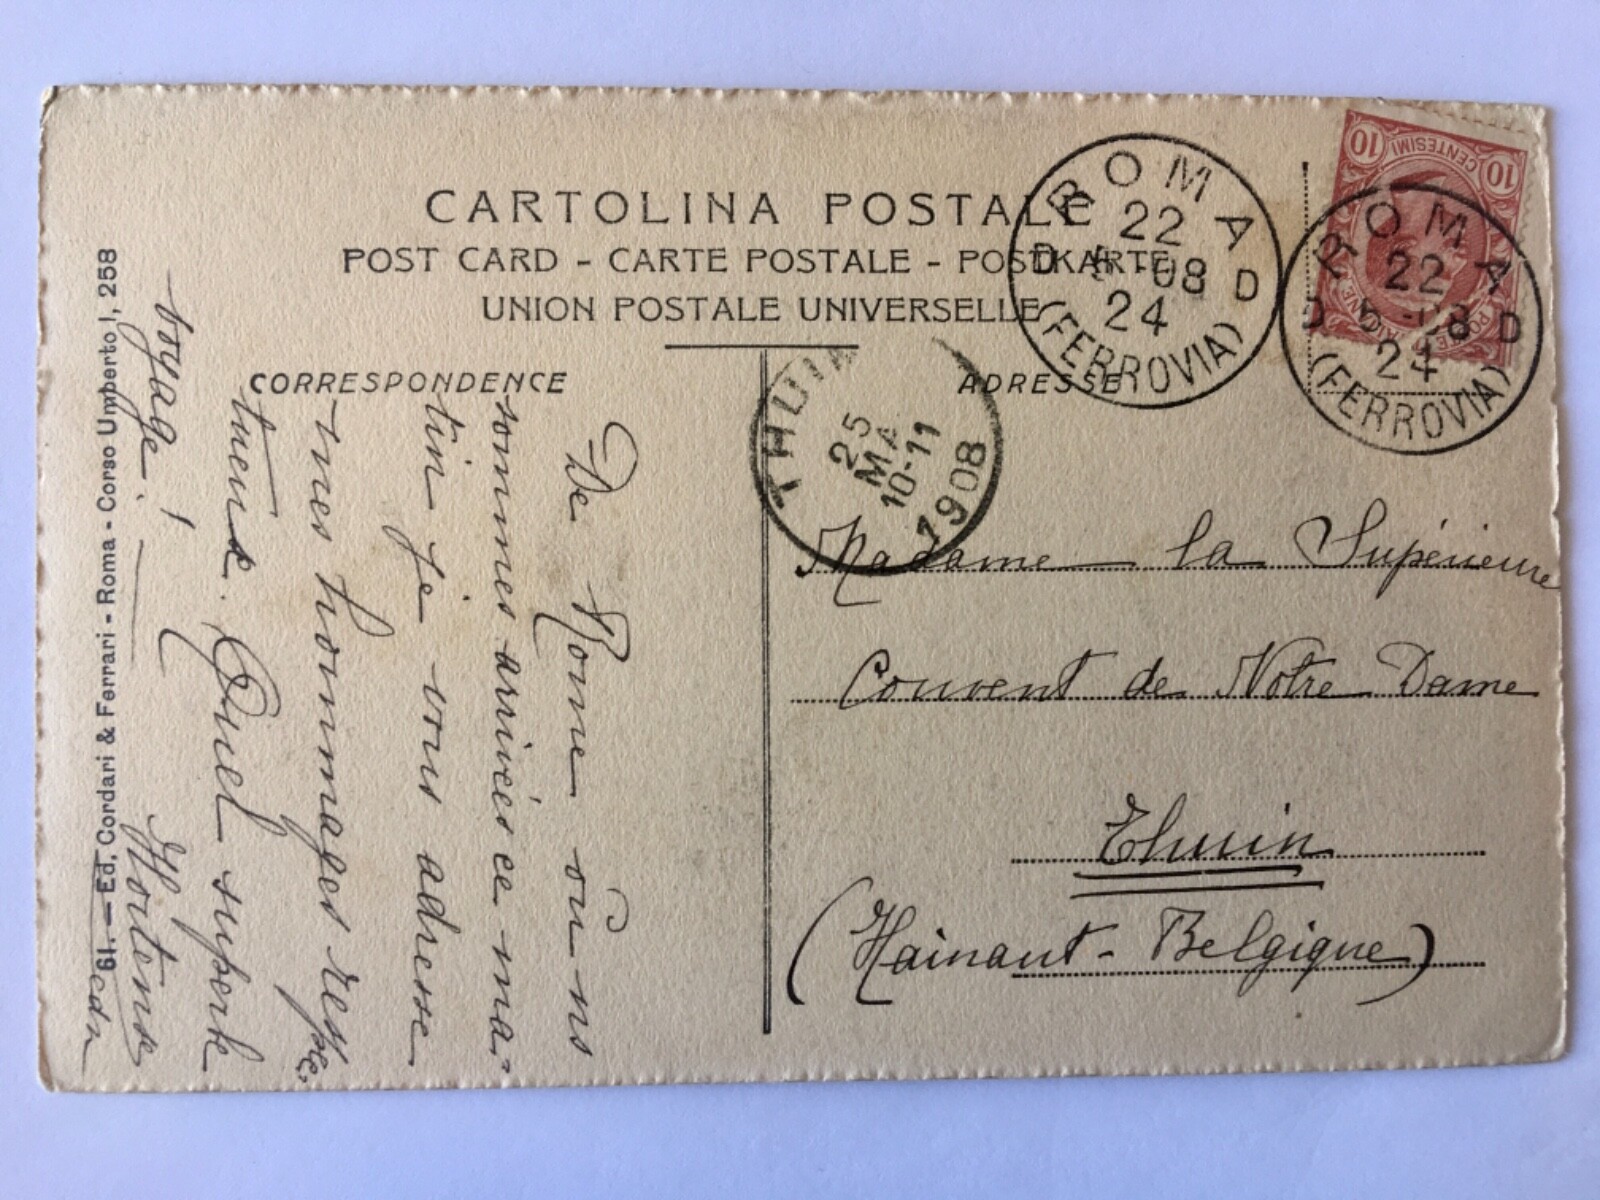 CARTOLINA POSTALE
POST CARD - CARTE POSTALE - POSTKARTE
UNION POSTALE UNIVERSELLE
CORRESPONDENCE
ADRESSE
ROMA
22
D 5 -08 D
24
(FERROVIA)
10 CENTESIMI 10
ROMA
22
D 5 -08 D
24
(FERROVIA)
THUIN
25
MA
10-11
1908
Madame la Supérieure
Couvent de Notre Dame
Thuin
(Hainaut - Belgique)
De Rome où ns
sommes arrivées ce ma=
tin je vous adresse
mes hommages respec=
tueux. Quel superbe
voyage!
Hortense
61. — Ed. Cordari & Ferrari - Roma - Corso Umberto I, 258